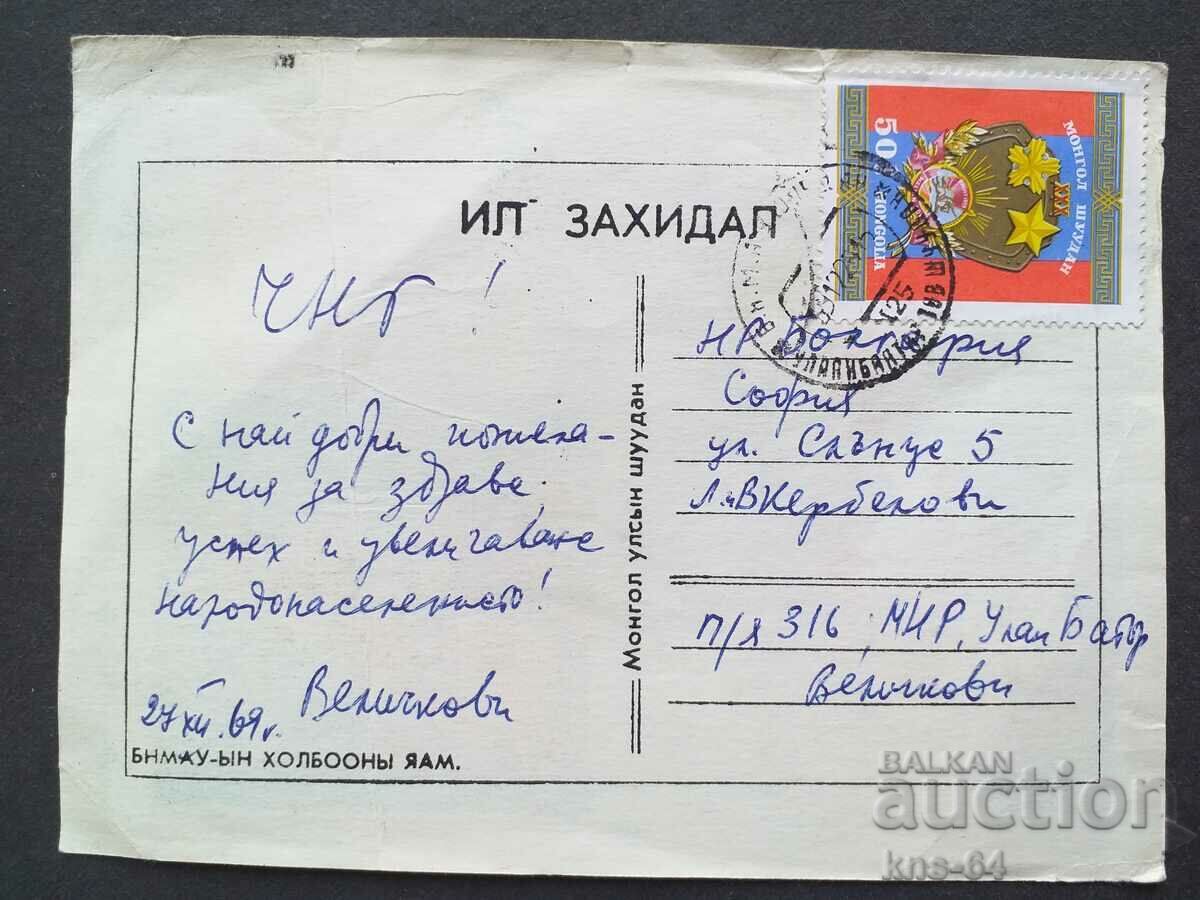 ИЛ ЗАХИДАЛ
МОНГОЛ ШУУДАН
XXX
50
МОНГОЛ
УЛААНБААТАР
125
ЧНГ!
С най добри пожела-
ния за здраве,
успех и увеличаване
народонаселението!
Величкови
27 XII. 69 г.
БНМАУ-ЫН ХОЛБООНЫ ЯАМ.
Монгол улсын шуудан
НР България
София
ул. Слънце 5
Кербелови
п/я 316, МНР, Улан Батор
Величкови
BALKAN
auction
kns-64